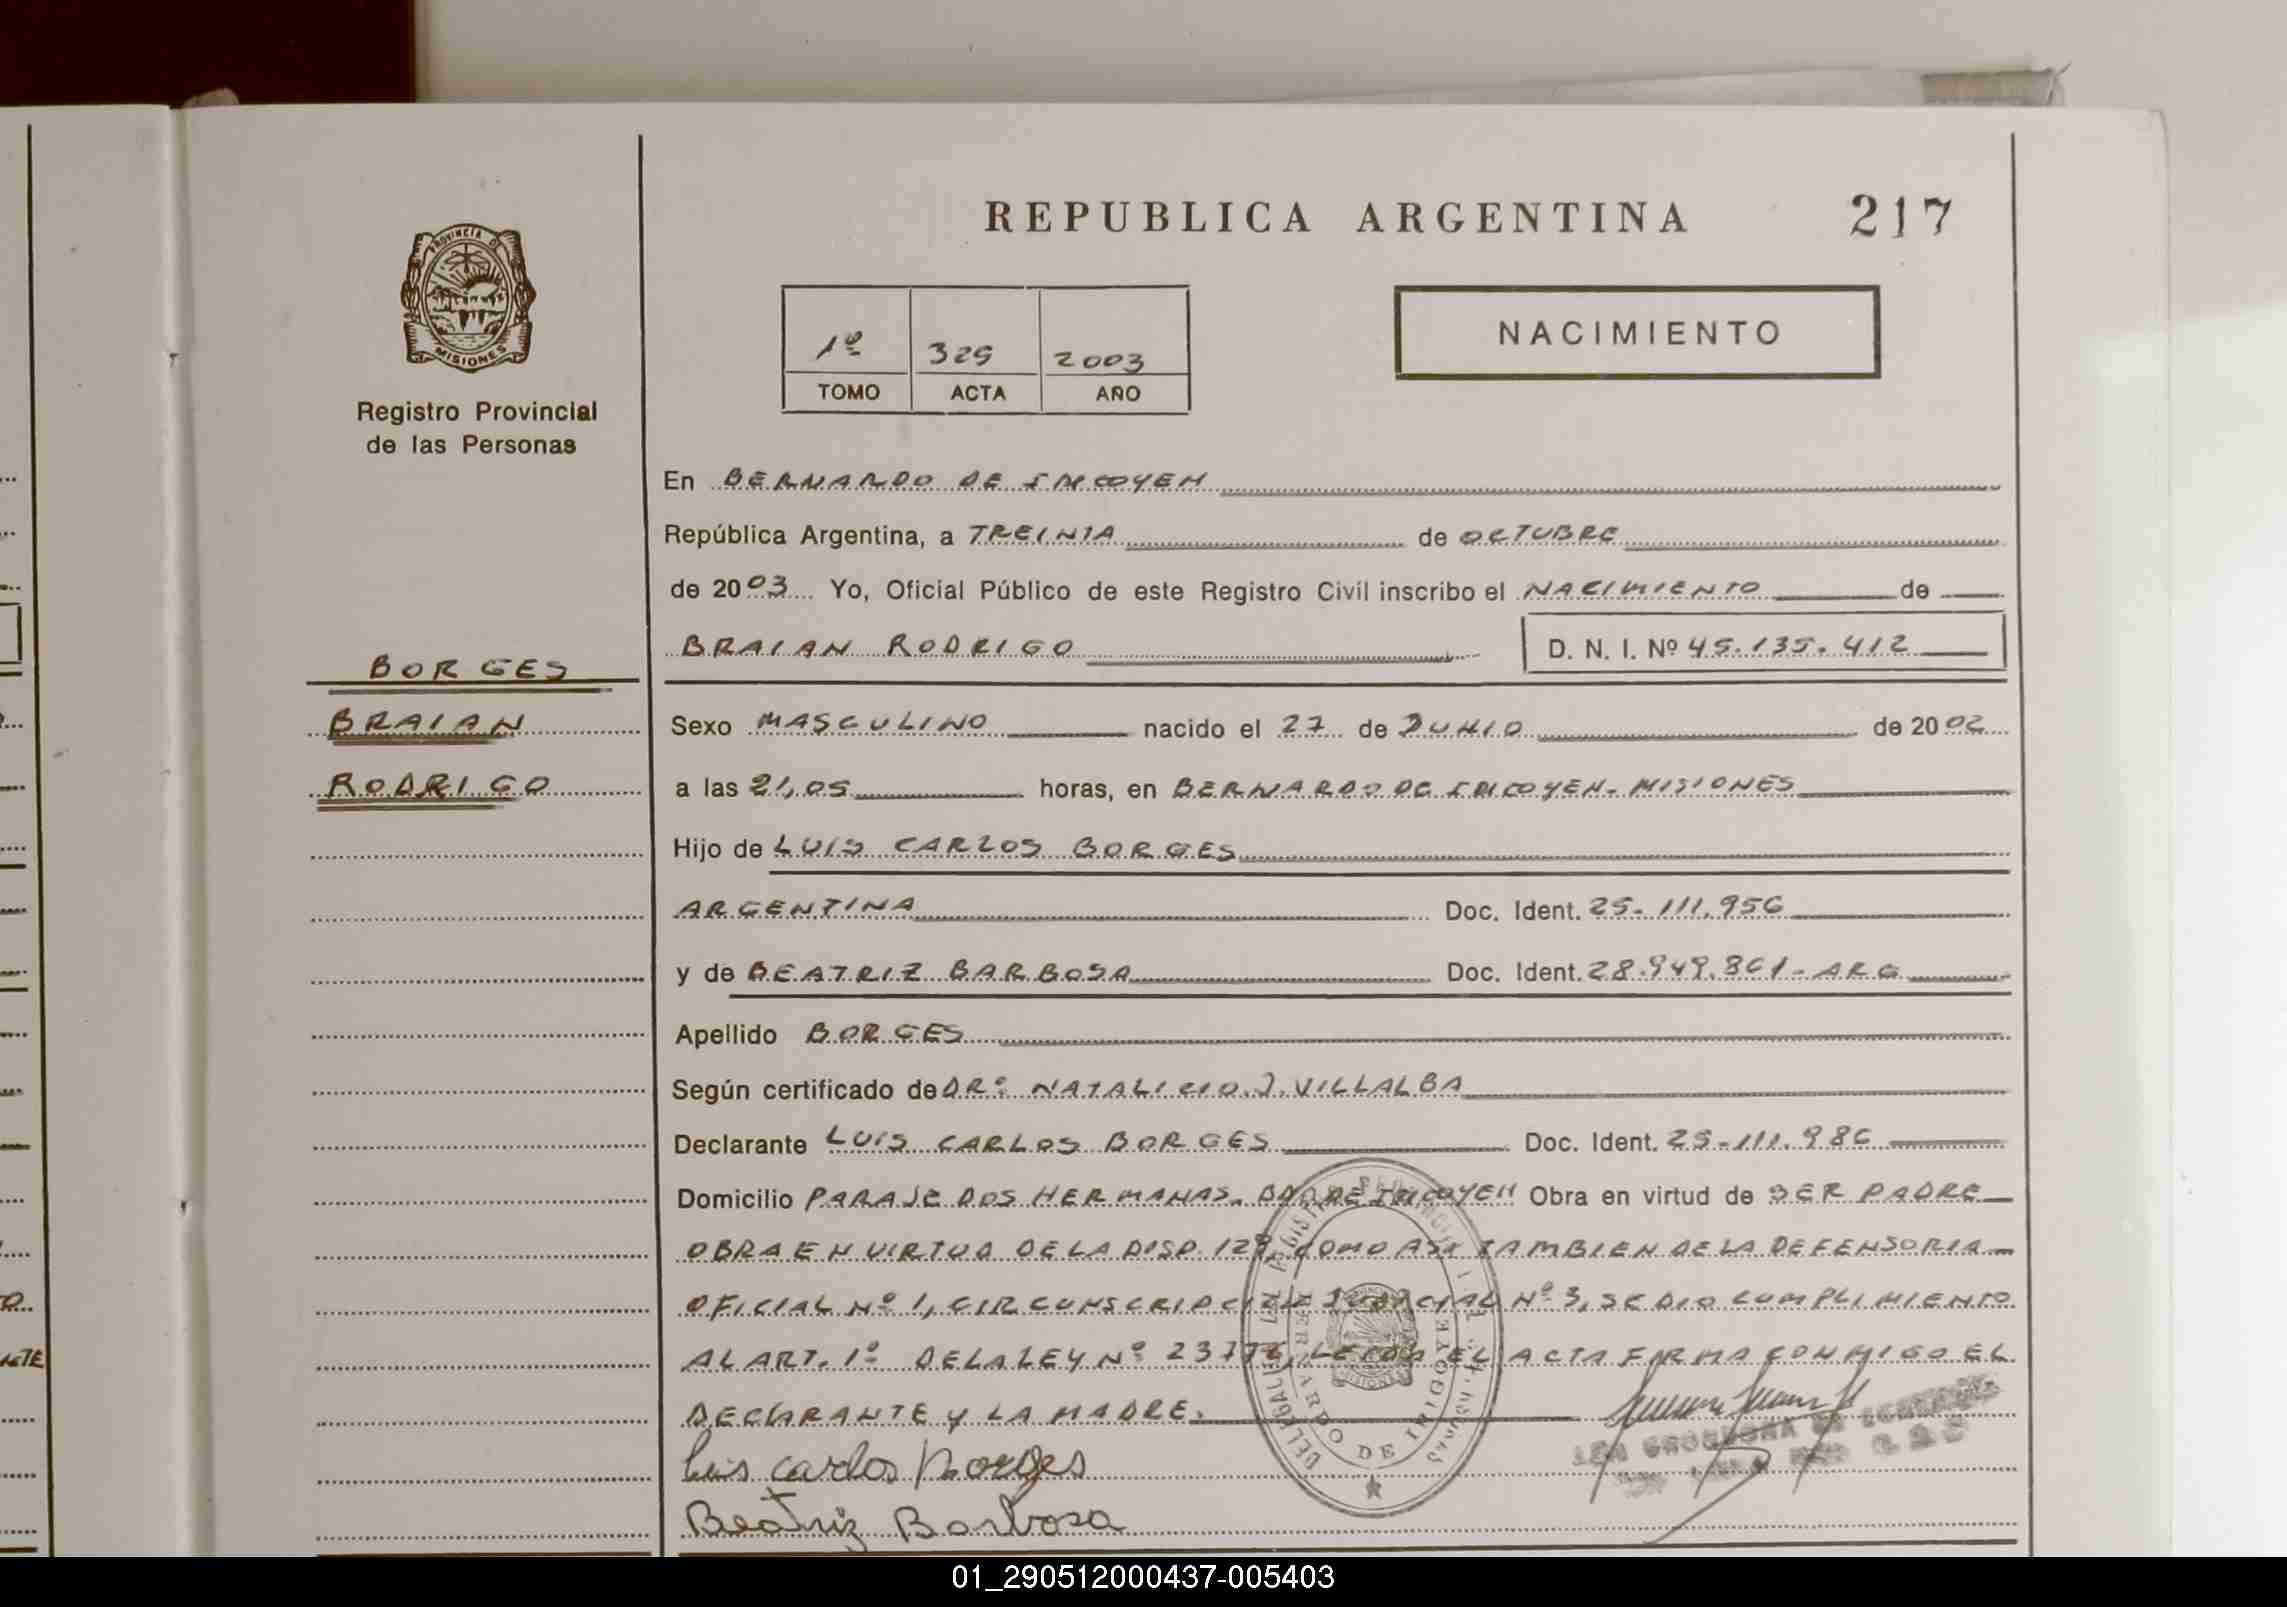 REPUBLICA ARGENTINA
217
PROVINCIA DE
MISIONES
Registro Provincial
de las Personas
1º 329 2003
TOMO ACTA AÑO
NACIMIENTO
En BERNARDO DE IRIGOYEN
República Argentina, a TREINTA de OCTUBRE
de 2003 Yo, Oficial Público de este Registro Civil inscribo el NACIMIENTO de
BRAIAN RODRIGO D. N. I. Nº 45.135.412
BORGES
BRAIAN
RODRIGO
Sexo MASCULINO nacido el 27 de JUNIO de 2002
a las 21,05 horas, en BERNARDO DE IRIGOYEN. MISIONES
Hijo de LUIS CARLOS BORGES
ARGENTINA Doc. Ident. 25.111.956
y de BEATRIZ BARBOSA Doc. Ident. 28.949.861- ARG
Apellido BORGES
Según certificado de DRº NATALICIO.J.VILLALBA
Declarante LUIS CARLOS BORGES Doc. Ident. 25.111.986
Domicilio PARAJE DOS HERMANAS. BDO DE IRIGOYEN Obra en virtud de SER PADRE
OBRA EN VIRTUD DE LA DISP. 129, COMO ASI TAMBIEN DE LA DEFENSORIA
OFICIAL Nº 1, CIRCUNSCRIPCION JUDICIAL Nº 3, SE DIO CUMPLIMIENTO
AL ART. 1º DE LA LEY Nº 23776, LEIDA EL ACTA FIRMA CONMIGO EL
DECLARANTE Y LA MADRE.
Luis carlos Borges
Beatriz Barbosa
01_290512000437-005403